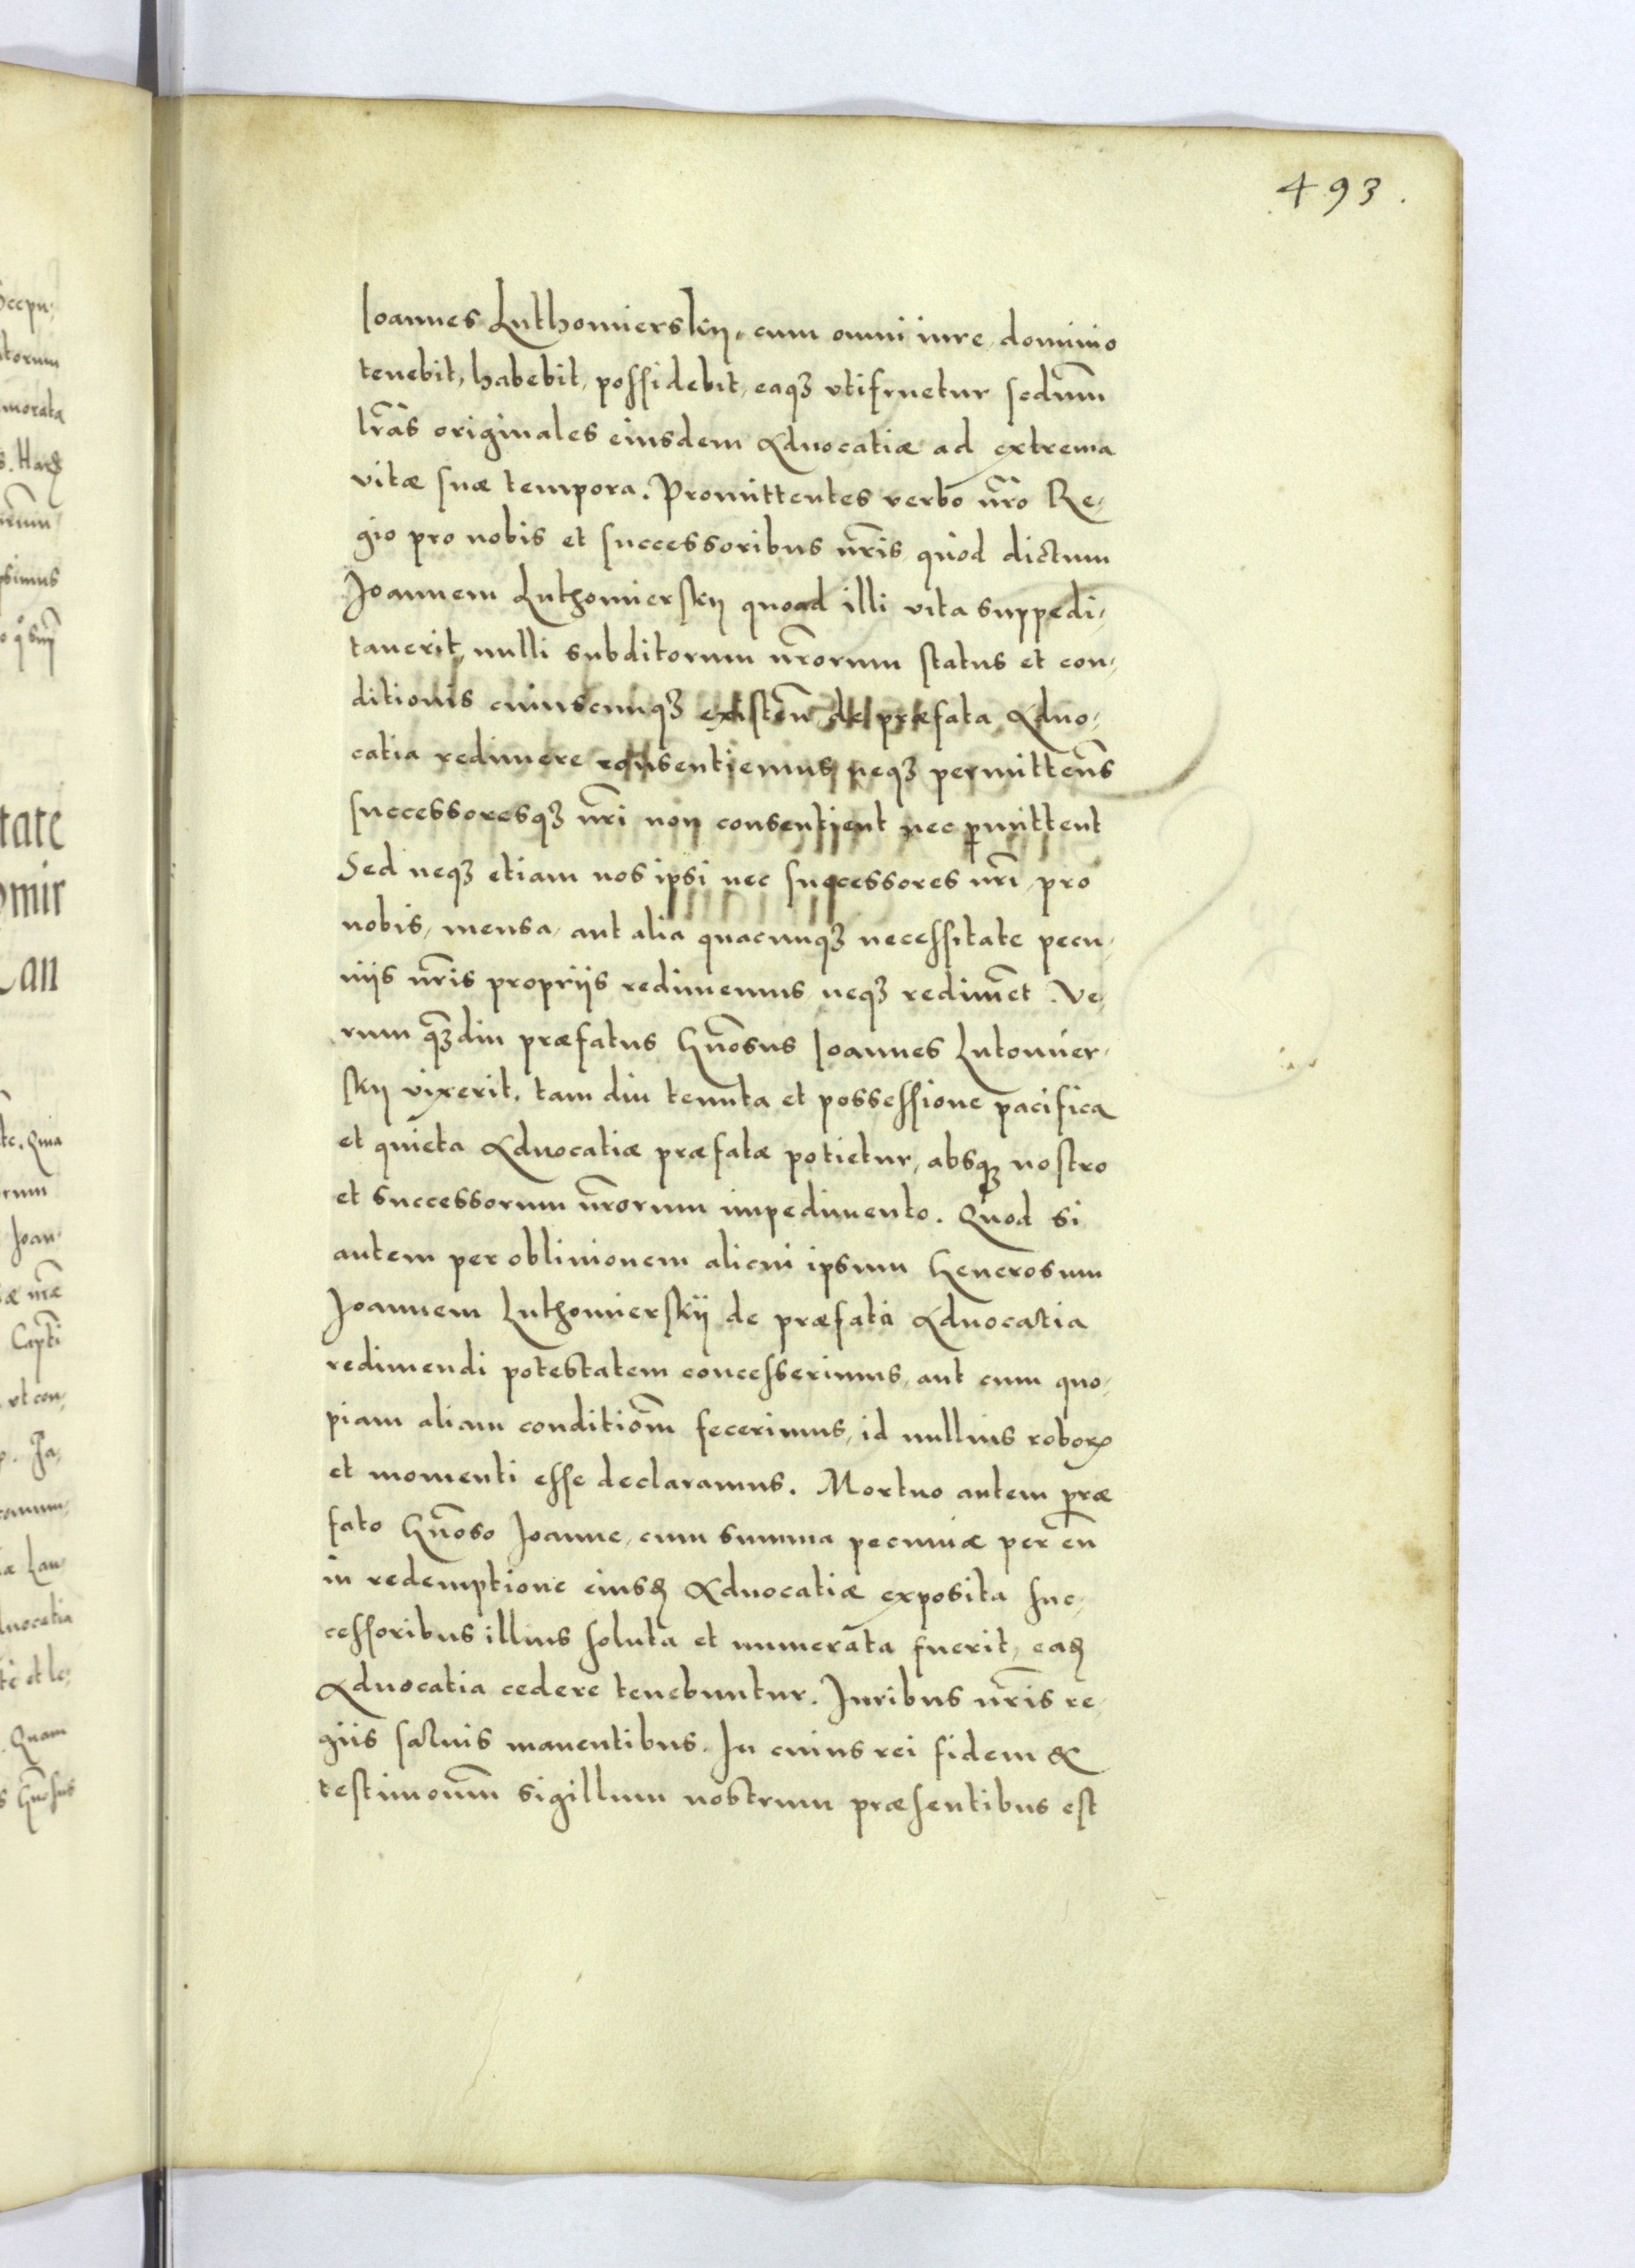 493.
Ioannes Luthomierskij, cum omni iure, dominio
tenebit, habebit, possidebit, eaqꝫ vtifruetur secdum̅
lr̅as originales eiusdem Aduocatiæ ad extrema
vitæ suæ tempora. Promittentes verbo nr̅o Re-
gio pro nobis et successoribus nr̅is, quod dictum
Joannem Luthomierskij quoad illi vita suppedi-
tauerit, nulli subditorum nr̅orum status et con-
ditionis cuiuscunqꝫ existen̅ de præfata Aduo-
catia redimere consentiemus neqꝫ permittem̅s
successoresqꝫ nr̅i non consentient nec ꝑmittent
Sed neqꝫ etiam nos ipsi nec successores nr̅i, pro
nobis, mensa, aut alia quacunqꝫ necessitate pecu-
niis nr̅is propriis redimemus, neqꝫ redime̅t. Ve-
rum qꝫdiu præfatus Gn̅osus Ioannes Lutomier-
skij vixerit, tam diu tenuta et possessione pacifica
et quieta Aduocatiæ præfatæ potietur, absqꝫ nostro
et successorum nr̅orum impedimento. Quod si
autem per obliuionem alicui ipsum Generosum
Joannem Luthomierskij de præfata Aduocatia
redimendi potestatem concesserimus, aut cum quo-
piam aliam conditiom̅ fecerimus, id nullius roboꝝ
et momenti esse declaramus. Mortuo autem præ
fato Gn̅oso Joanne, cum summa pecuniæ per eu̅
in redemptione eiusꝺ Aduocatiæ exposita suc-
cessoribus illius soluta et numerata fuerit, eaꝺ
Aduocatia cedere tenebuntur. Juribus nr̅is re-
giis saluis manentibus. In cuius rei fidem &
testimoniu̅m sigillum nostrum præsentibus est